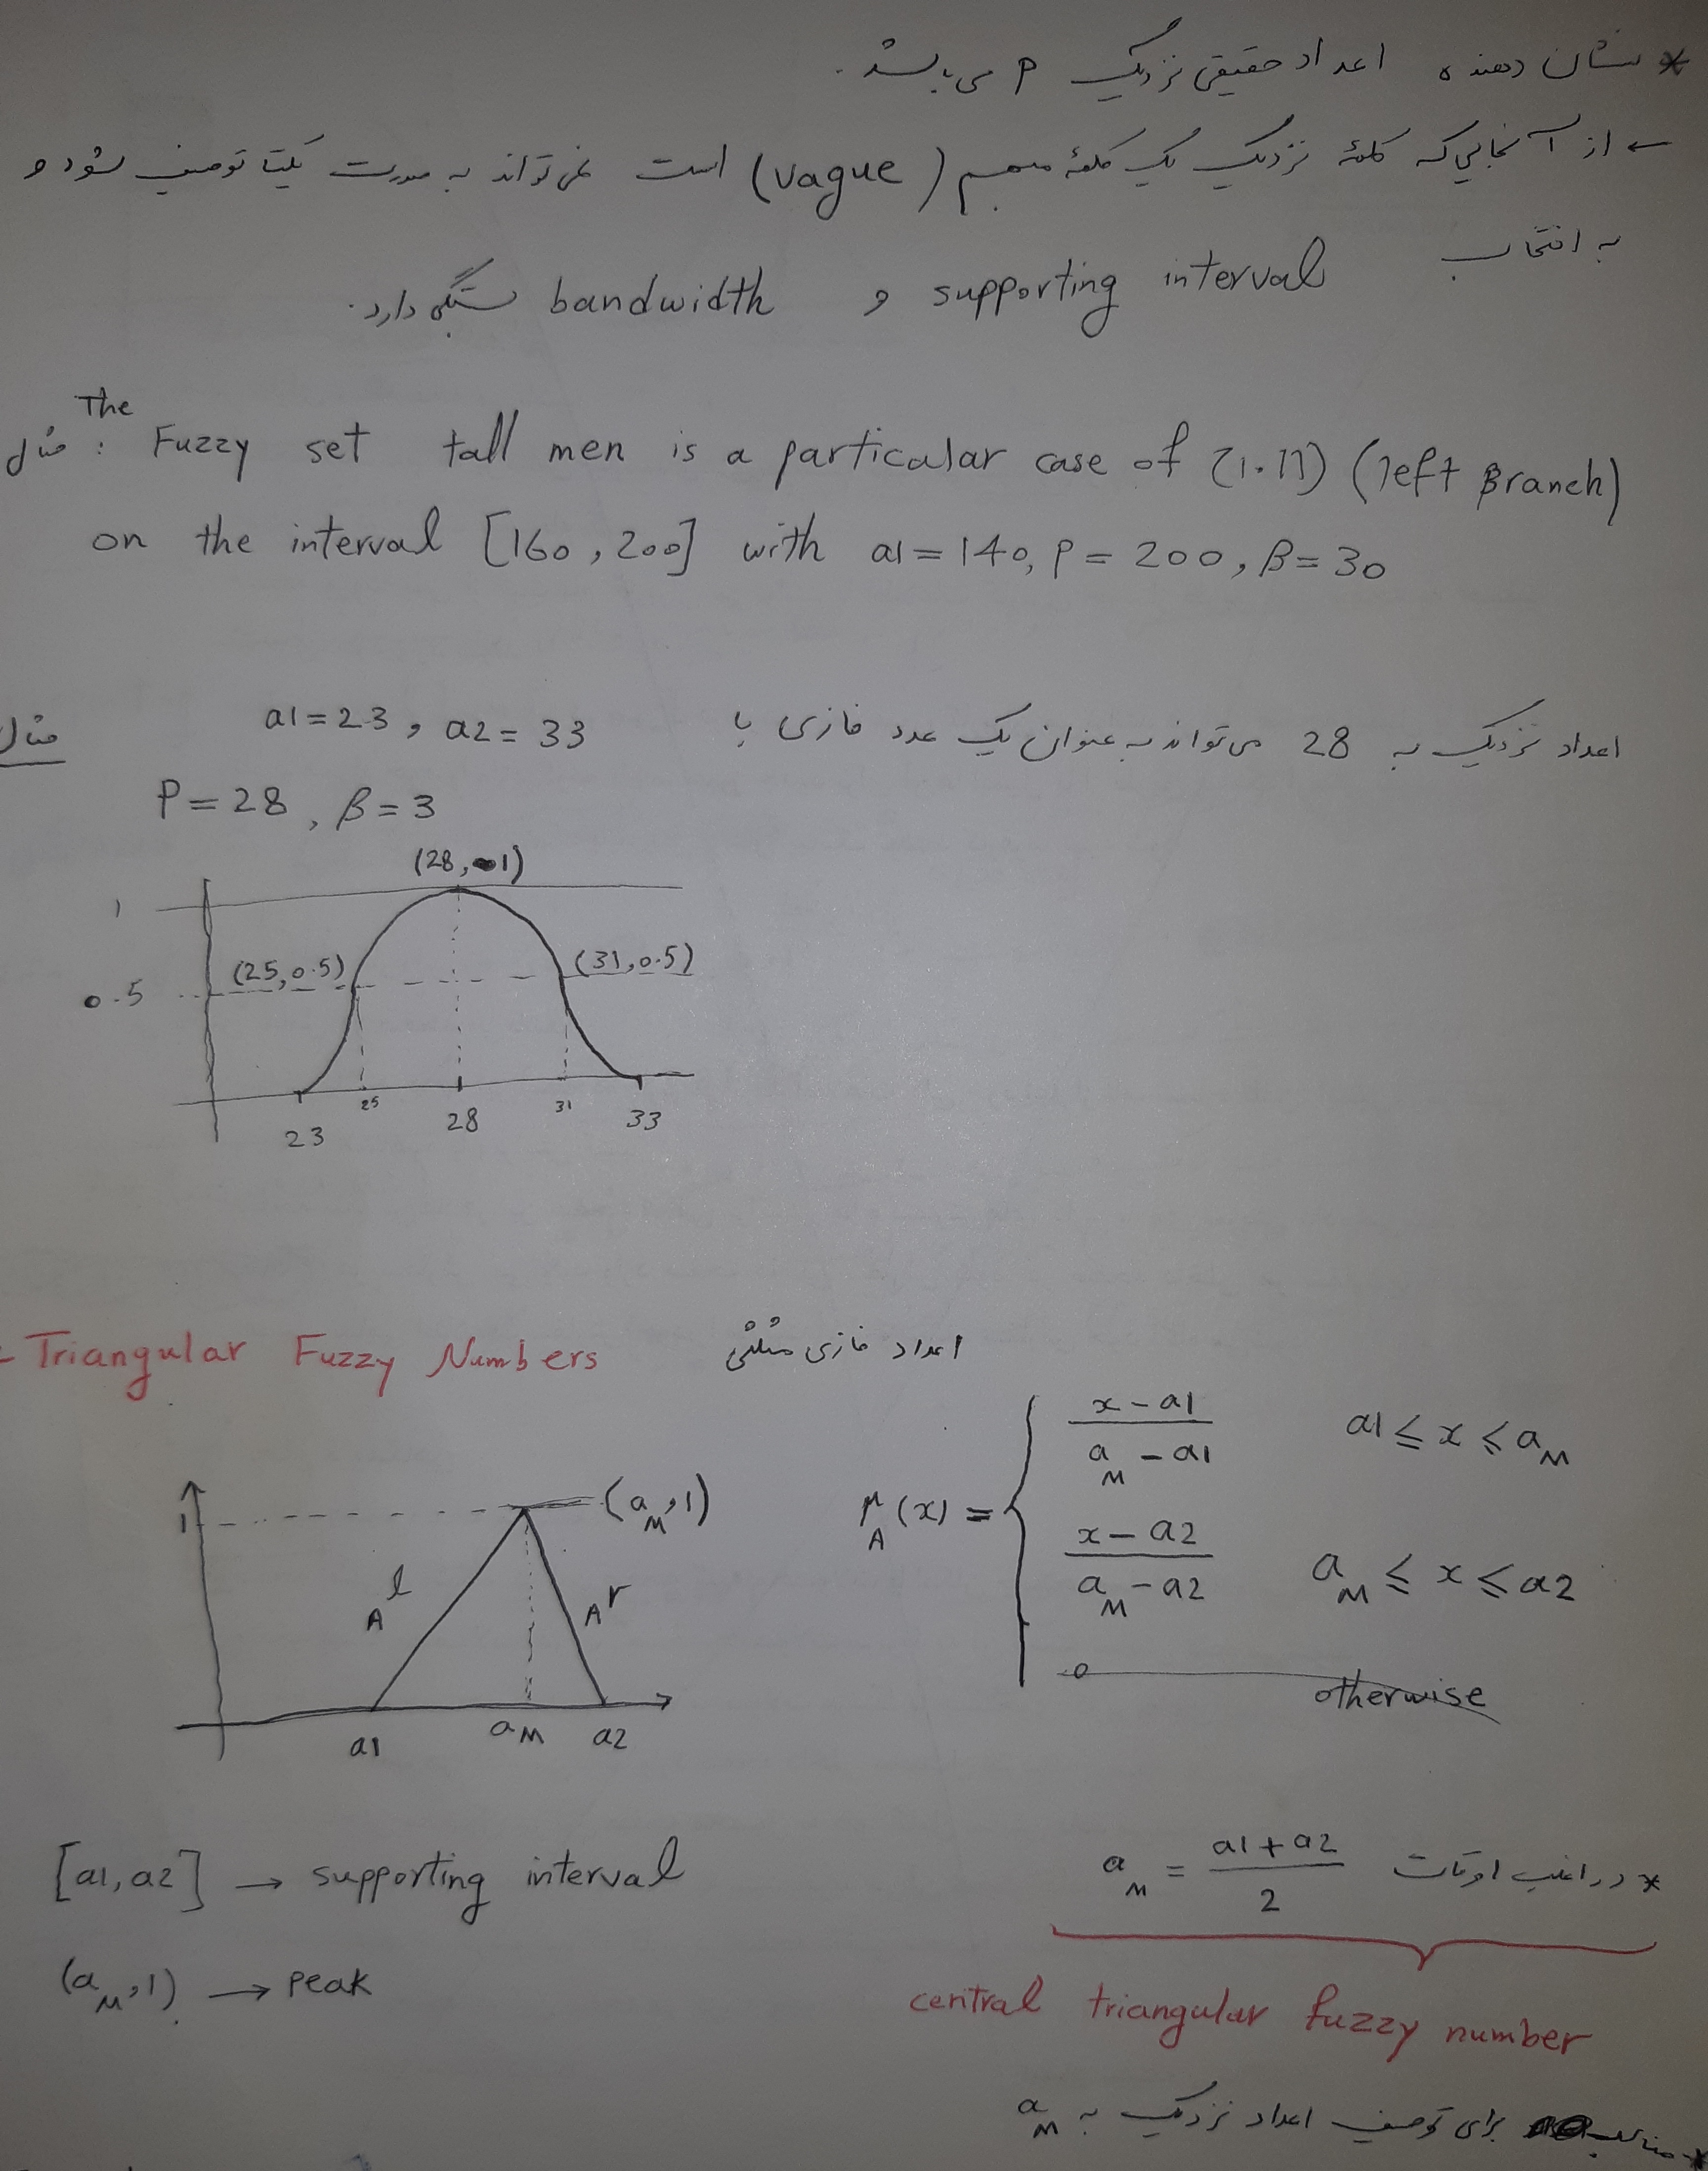 * نشان دهنده اعداد حقیقی نزدیک P می باشد.
← از آنجایی که کلمهٔ نزدیک یک کلمهٔ مبهم (vague) است نمی تواند به صورت یکتا توصیف شود و
به انتخاب supporting interval و bandwidth بستگی دارد.
مثال : The Fuzzy set tall men is a particular case of (1.11) (left Branch)
on the interval [160, 200] with a1 = 140, P = 200, β = 30
مثال اعداد نزدیک به 28 می تواند به عنوان یک عدد فازی با a1 = 23 , a2 = 33
P = 28 , β = 3
(28, 1)
1
(25, 0.5) (31, 0.5)
0.5
23 25 28 31 33
- Triangular Fuzzy Numbers اعداد فازی مثلثی
μ_A(x) = { (x - a1)/(a_M - a1) a1 ≤ x ≤ a_M
(x - a2)/(a_M - a2) a_M ≤ x ≤ a2
0 otherwise
1 (a_M, 1)
A^l A^r
a1 a_M a2
[a1, a2] → supporting interval
(a_M, 1) → peak
* در اغلب اوقات a_M = (a1 + a2)/2
central triangular fuzzy number
* مناسب برای توصیف اعداد نزدیک به a_M